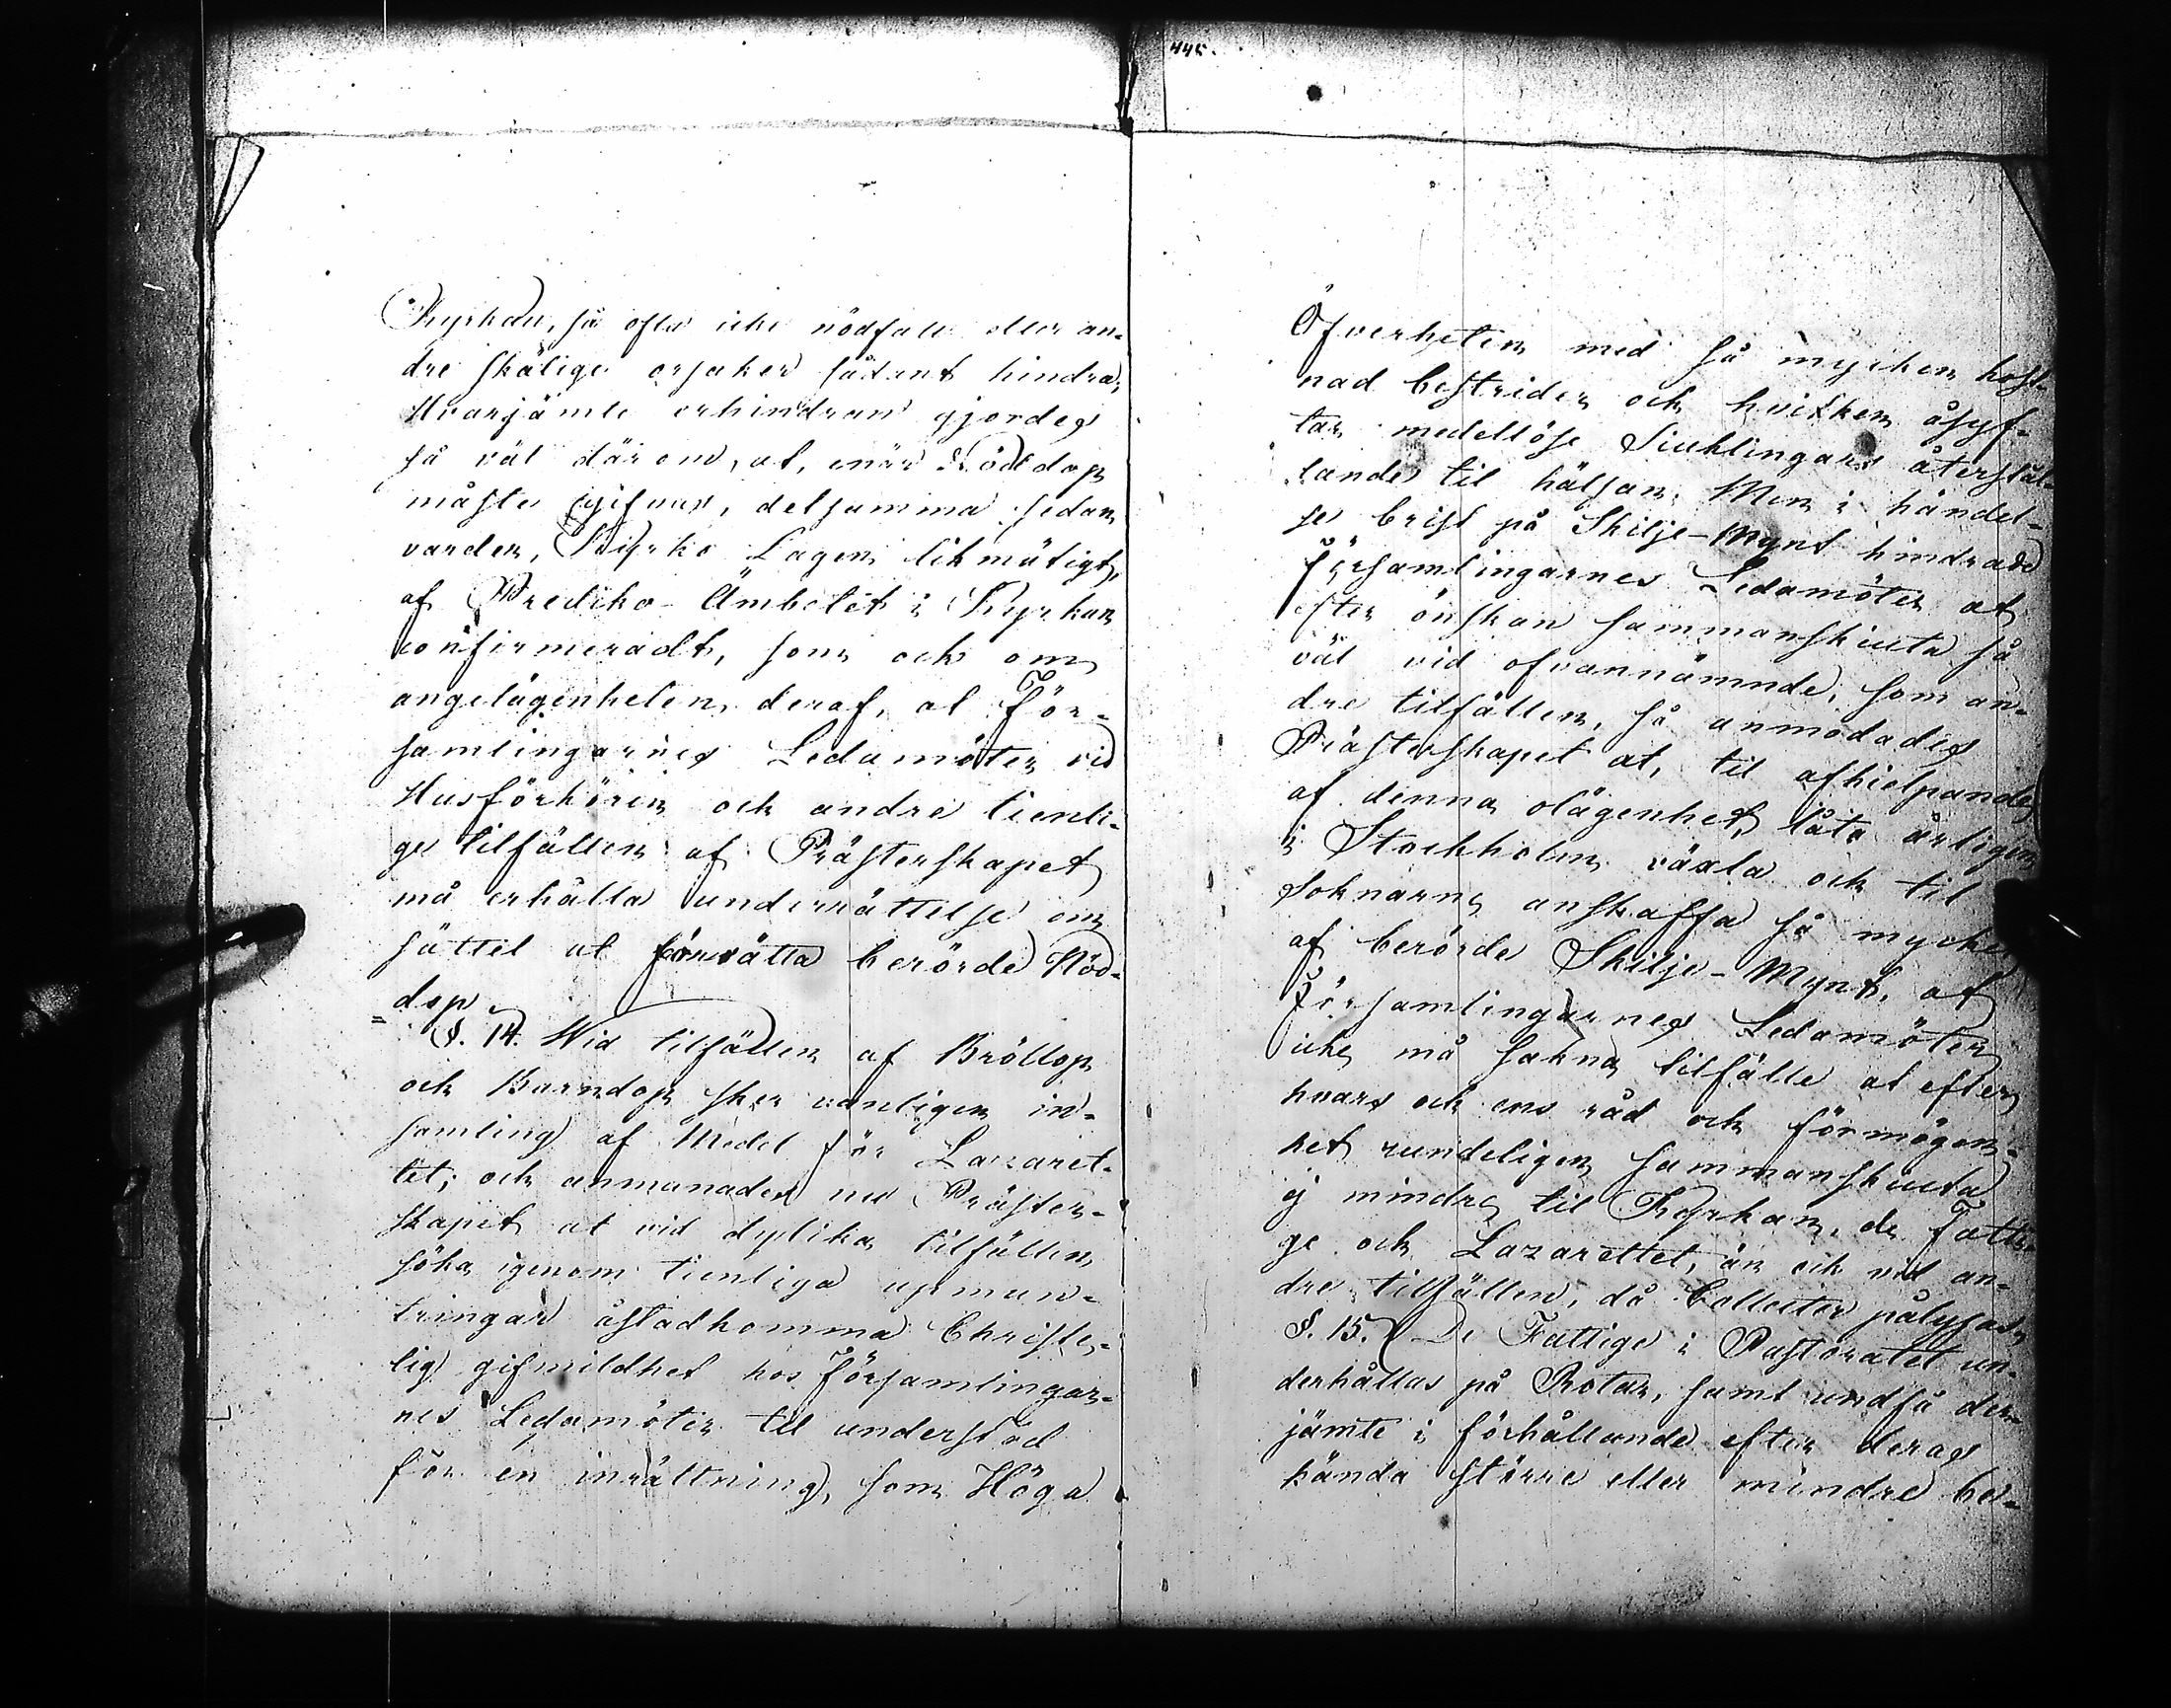 Kyrkan, så ofta icke nödfall eller an-
dre skälige orsaker sådant hindra;
Hvarjämte erhindran gjordes
så väl därom, at, enär Nöddop
måste gifvas, detsamma sedan
varder, Kyrko Lagen likmätigt,
af Prediko-Ämbetet i Kyrkan
confirmeradt, som ock om
angelägenheten deraf, at För-
samlingarnes Ledamöter vid
Husförhören och andre tienli-
ge tilfällen af Prästerskapet
må erhålla underrättelse om
sättet at förrätta berörde Nöd-
=dop.
§. 14. Wid tilfällen af Bröllop
och Barndop sker vanligen in-
samling af Medel för Lazaret-
tet; och anmanades nu Präster-
skapet at vid dylika tilfällen
söka igenom tienliga upmun-
tringar åstadkomma Christe-
lig gifmildhet hos Församlingar-
nes Ledamöter til understöd
för en inrättning, som Höga
445.
Öfverheten med så mycken kost-
nad bestrider och hvilken åsyf-
tar medellöse Siuklingars återstäl-
lande til hälsan. Men i händel-
se brist på Skilje-Mynt hindrade
Församlingarnes Ledamöter at
efter önskan sammanskiuta så
väl vid ofvannämnde, som an-
dre tilfällen, så anmodades
Prästerskapet at, til afhielpande
af denna olägenhet, låta årligen
i Stockholm växla och til
Soknarna anskaffa så mycket
af berörde Skilje-Mynt, at
Församlingarnes Ledamöter
icke må sakna tilfälle at efter
hvars och ens råd och förmögen-
het rundeligen sammanskiuta
ej mindre til Kyrkan, de Fatti-
ge och Lazarettet, än ock vid an-
dre tilfällen, då Collecter pålysas.
§. 15. De Fattige i Pastoratet un-
derhållas på Rotar, samt undfå der-
jämte i förhållande efter deras
kända större eller mindre be-